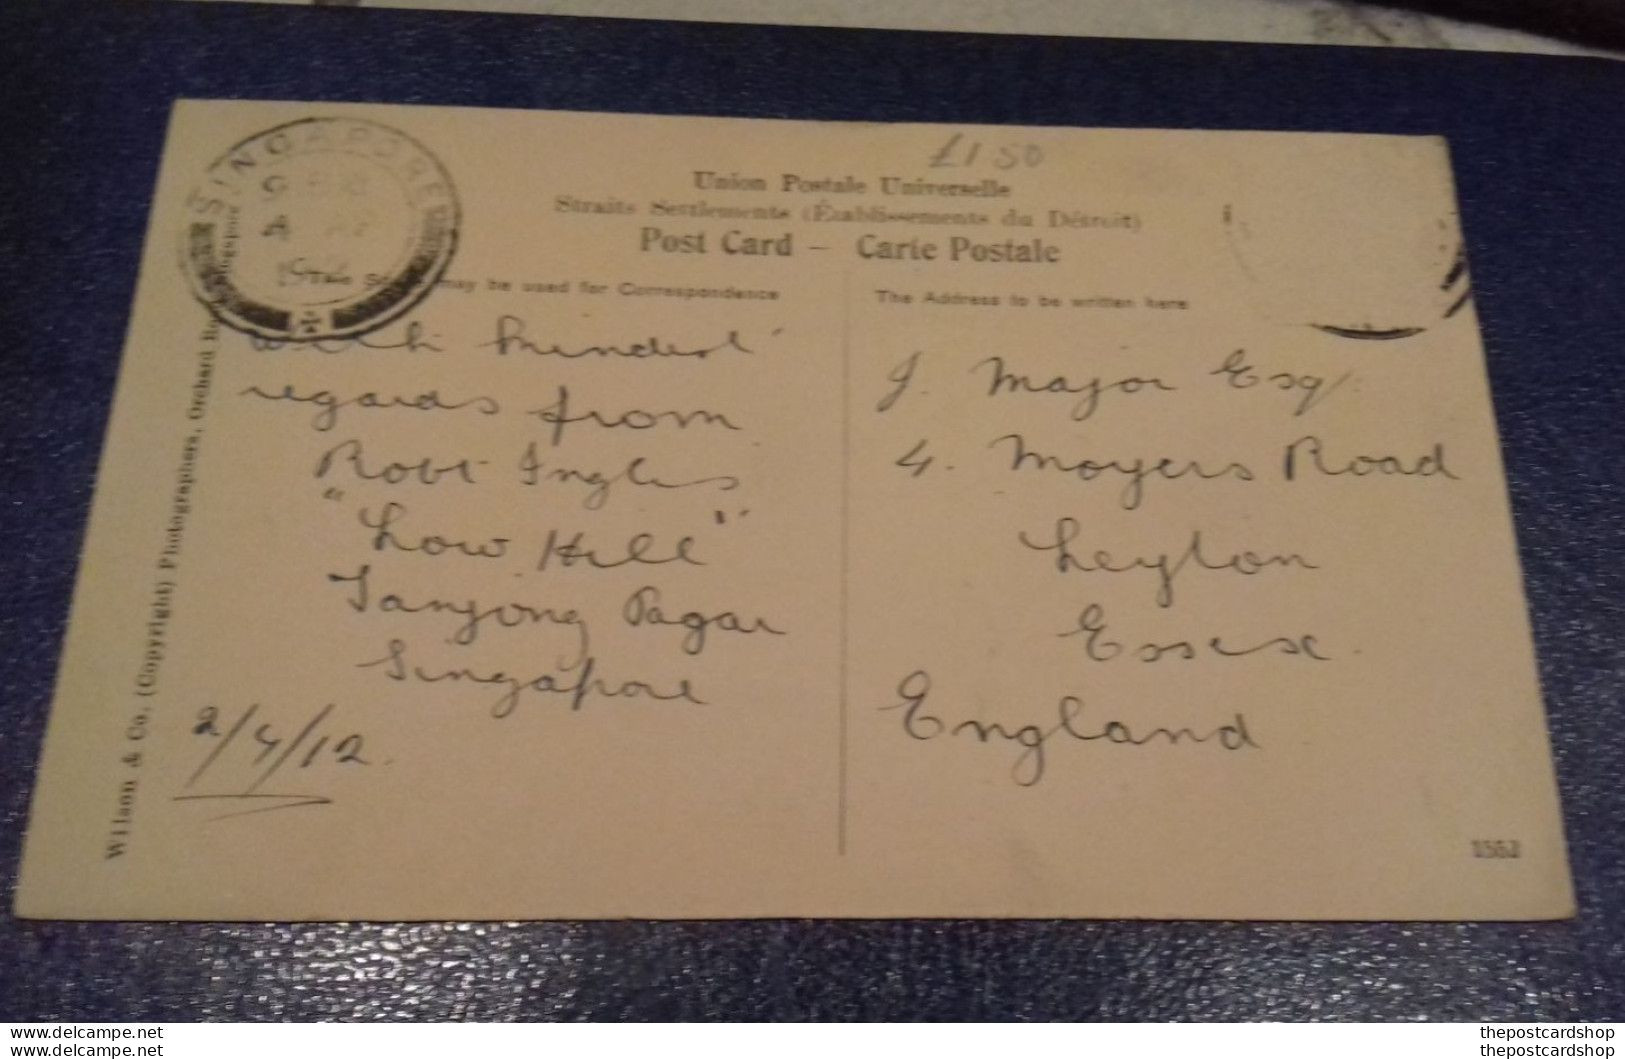 £1 50
Union Postale Universelle
Straits Settlements (Établissements du Détroit)
Post Card – Carte Postale
SINGAPORE
may be used for Correspondence
The Address to be written here
with kindest
regards from
Robt Inglis
"Low Hill"
Tanjong Pagar
Singapore
2/4/12.
J. Major Esq.
4. Moyers Road
Leyton
Essex.
England
Wilson & Co. (Copyright) Photographers, Orchard
1552
www.delcampe.net
www.delcampe.net
thepostcardshop
thepostcardshop